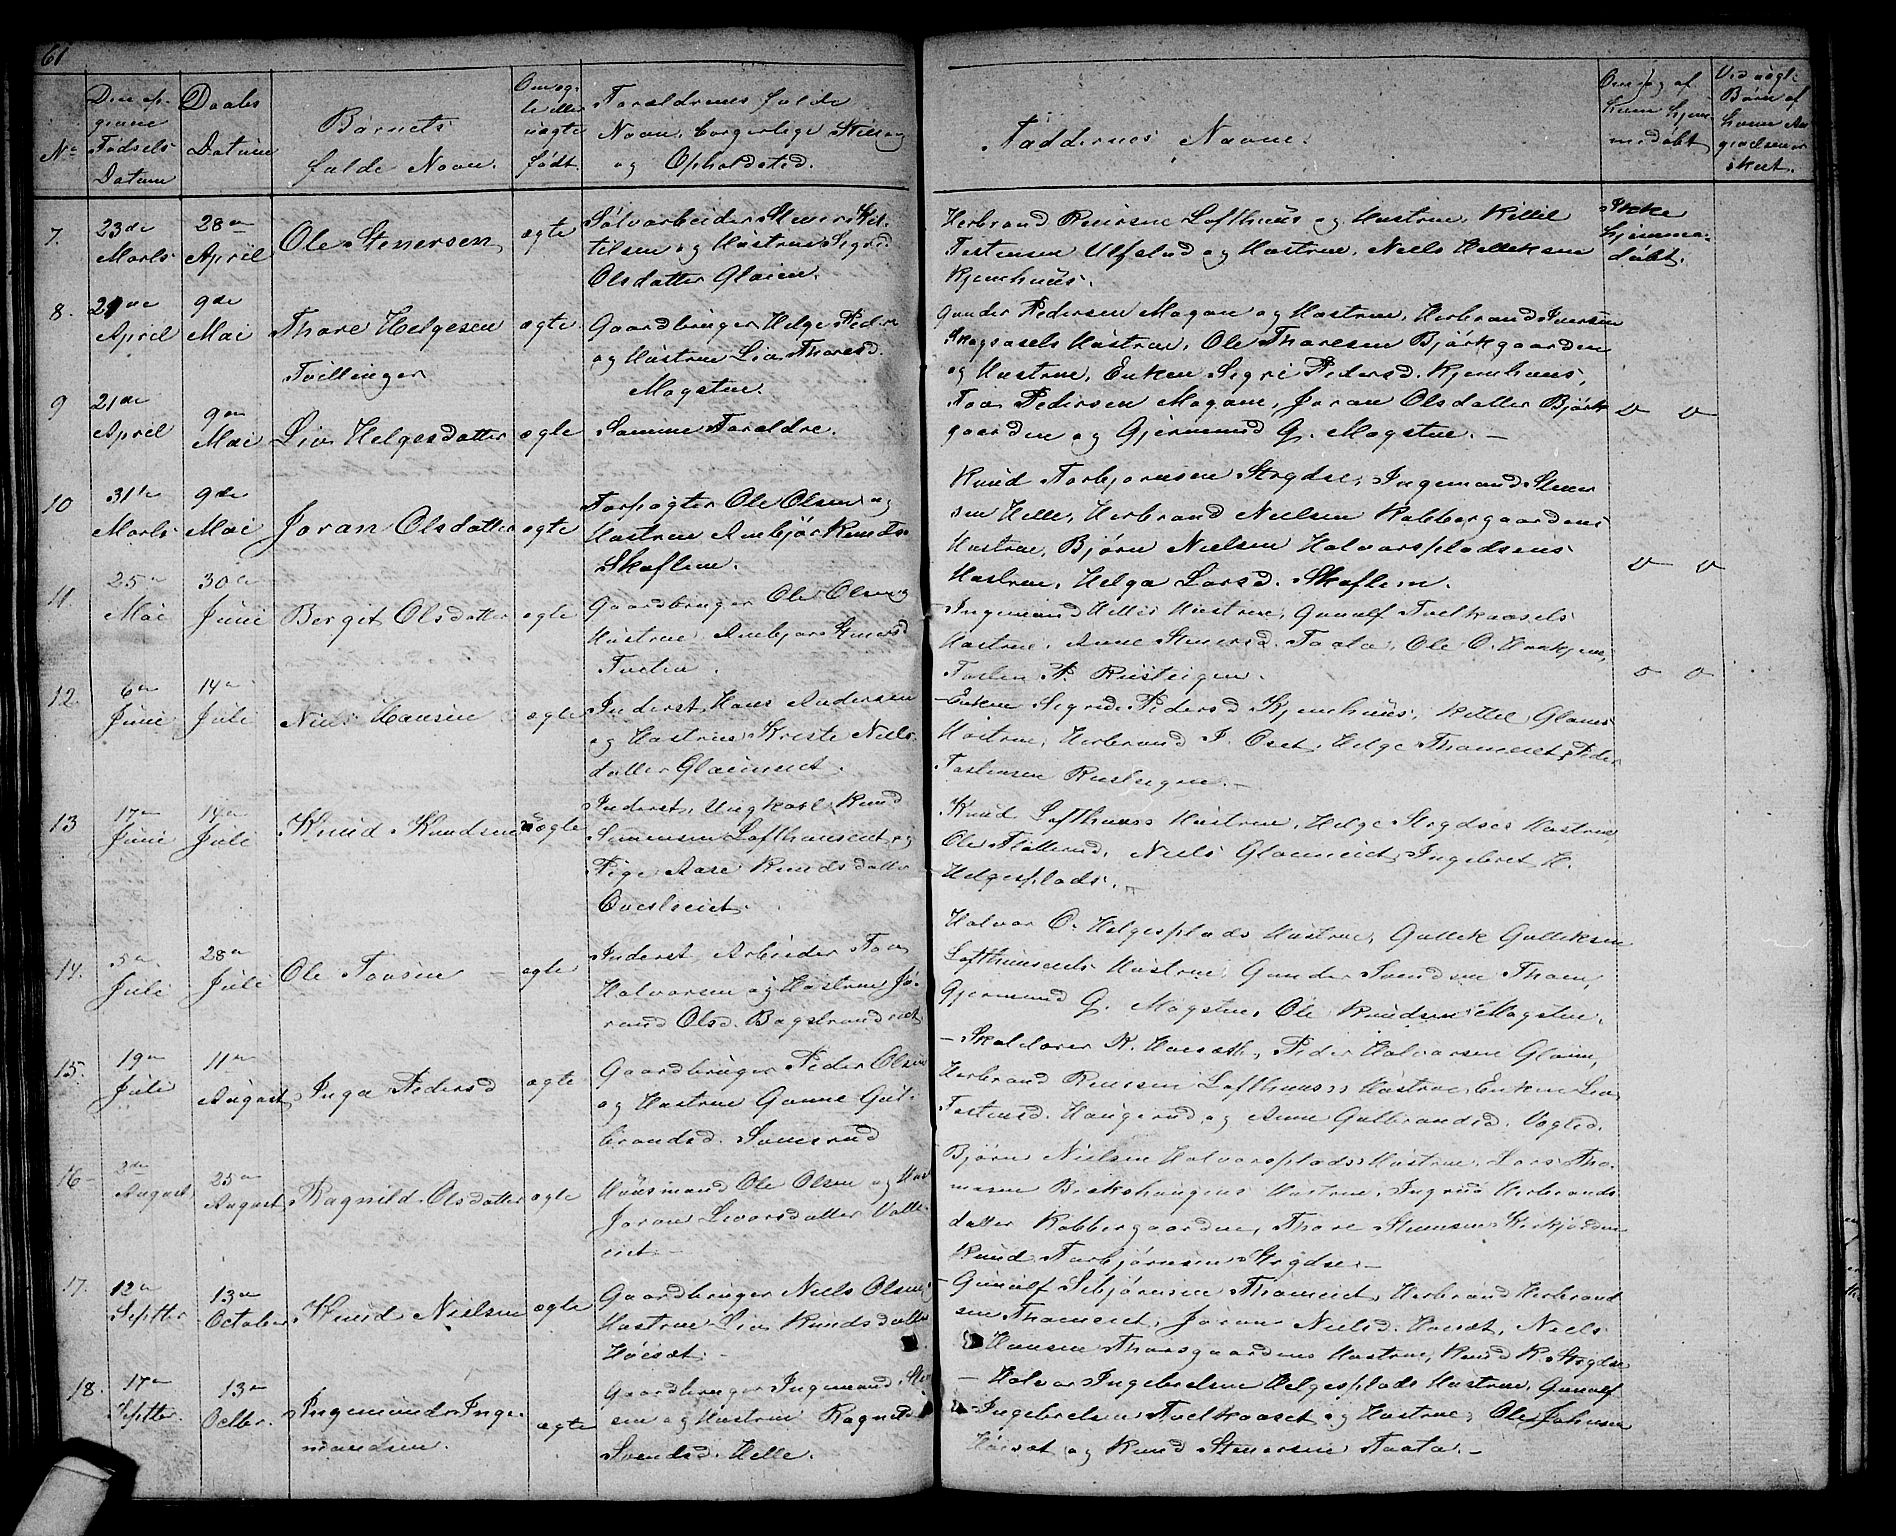 61
No
Den op-
givne
Fødsels
Datum
Daabs
Datum
Børnets
fulde Navn.
Om æg-
te eller
uægte
født.
Forældrenes fulde
Navn, borgerlige Stilling
og Opholdsted.
Faddernes Navne.
Om og af
hvem hjem-
medøbt
Ved uægte
Børn af
hvem An-
givelsen er
skeet.
7.
23de
Marts
28de
April
Ole Stenersen
ægte
Sølvarbeider Stener Ket-
tilsen og Hustrue Sigrid
Olsdatter Glaim.
Herbrand Lofthuus og Hustrue, Kittil
Tostensen Ulfslud og Hustrue, Niels Helleksen
Kjemhuus.
Ikke
hjemme-
døbt.
8.
21de
April
9de
Mai
Thore Helgesen
Tvillinger
ægte
Gaardbruger Helge Peders
og Hustrue Liv Thoresd.
Mogstue.
Gunder Pedersen Mogan og Hustrue, Herbrand Iversen
Hustrue, Ole Thoresen Bjørkgaarden
og Hustrue, Enken Sigri Pedersd. Kjemhuus,
9
21de
April
9de
Mai
Liv Helgesdatter
ægte
Samme Forældre.
Tov Pedersen Mogan, Joran Olsdatter Bjørk
gaarden og Gjermund G. Mogstue. —
v v
10
31te
Marts
9de
Mai
Joran Olsdatter
ægte
Forpagter Ole Olsen og
Hustrue Anbjør Knuds.
Skaflem.
Knud Torbjørnsen Strgdse, Ingemund Stener
sen Helle, Herbrand Nielsen Kobbergaardens
Hustrue, Bjørn Nielsen Halvorspladsens
Hustrue, Helga Larsd. Skaflem.
v v
11.
25de
Mai
30te
Juni
Bergit Olsdatter
ægte
Gaardbruger Ole Olsen og
Hustrue Anbjørs Stenersd.
Tveten.
Ingemund Helles Hustrue, Gunulf Tvetkaasets
Hustrue, Anne Stenersd. Taata, Ole O.
P. Rusteigen.
v v
12.
6te
Juni
14de
Juli
Niels Hansen
ægte
Inderst Hans Andersen
og Hustrue Kriste Niels-
datter Glaimeiet.
— Enken Sigrid Pedersd Kjemhuus, Kittel Glaims
Hustrue, Herbrand I. Oset, Helge Thameiet, Peder
Tostensen Rusteigen. —
13
17de
Juni
14de
Juli
Knud Knudsen
uægte
Inderst, Ungkarl Knud
Lofthuuseiet og
Pige Aase Knudsdatter
Knud Lofthuuss Hustrue, Helge Hustrue,
Ole Niels Glaimeiet, Ingebret H.
Helgesplads. —
14.
5te
Juli
28de
Juli
Ole Tovsen
ægte
Inderst, Arbeider Tov
Halvorsen og Hustrue Jø-
rand Olsd. Bagstrandeiet
Halvor O. Helgesplads Hustrue, Gullek Gulleksen
Lofthuuseiets Hustrue, Gunder Svendsen Tham,
Gjermund G. Mogstue, Ole Knudsen Mogstue.
15.
19de
Juli
11te
August
Inga Pedersd
ægte
Gaardbruger Peder Olsen
og Hustrue Gunne Gul-
brandsd. Somsrud
— Skolelærer K. Peder Halvorsen Glaim,
Herbrand Lofthuuss Hustrue, Enken Liv
Tostensd. Haugerud og Anne Gulbrandsd. Vogled.
16 —
2den
August
25de
August
Ragnild Olsdatter
ægte
Huusmand Ole Olsen og Hust.
Joran Livorsdatter
eiet —
Bjørn Nielsen Halvorsplads Hustrue, Lars Tho-
masen Hustrue, Ingrid Herbrands
datter Kobbergaarden, Thore
Knud Torbjørnsen Strgdse. —
17.
12te
Septber
13de
October
Knud Nielsen
ægte
Gaardbruger Niels Olsen
Hustrue Liv Knudsdatter
Høisæt. —
— Gunulf Thameiet, Herbrand Herbrand
sen Thameiet, Joran Nielsd. Høisæt, Niels
Hansen Hustrue, Knud K. Strgdse
18.
17de
Septber.
13de
Octbr.
Ingemund Inge-
mundsen.
ægte
Gaardbruger Ingemund
sen og Hustrue Ragnild
Svendsd. Helle.
— Halvor Ingebretsen Helgesplads Hustrue, Gunulf
Ingebretsen Tvetkaaset og Hustrue, Ole Johnsen
Høisæt og Knud Stenersen Taata. —